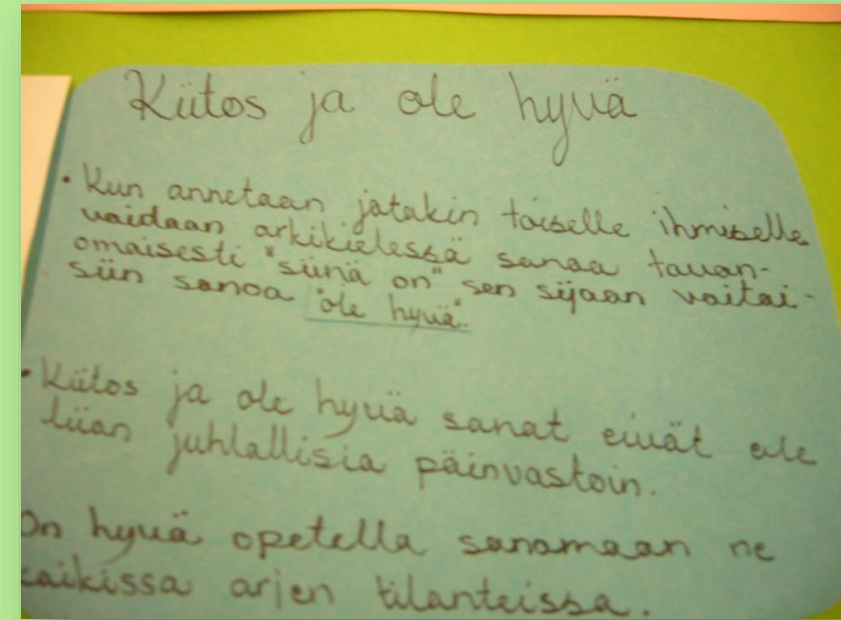 Kiitos ja ole hyvä
• Kun annetaan jotakin toiselle ihmiselle
voidaan arkikielessä sanoa tavan-
omaisesti "siinä on" sen sijaan voitai-
siin sanoa "ole hyvä".
• Kiitos ja ole hyvä sanat eivät ole
liian juhlallisia päinvastoin.
On hyvä opetella sanomaan ne
kaikissa arjen tilanteissa.